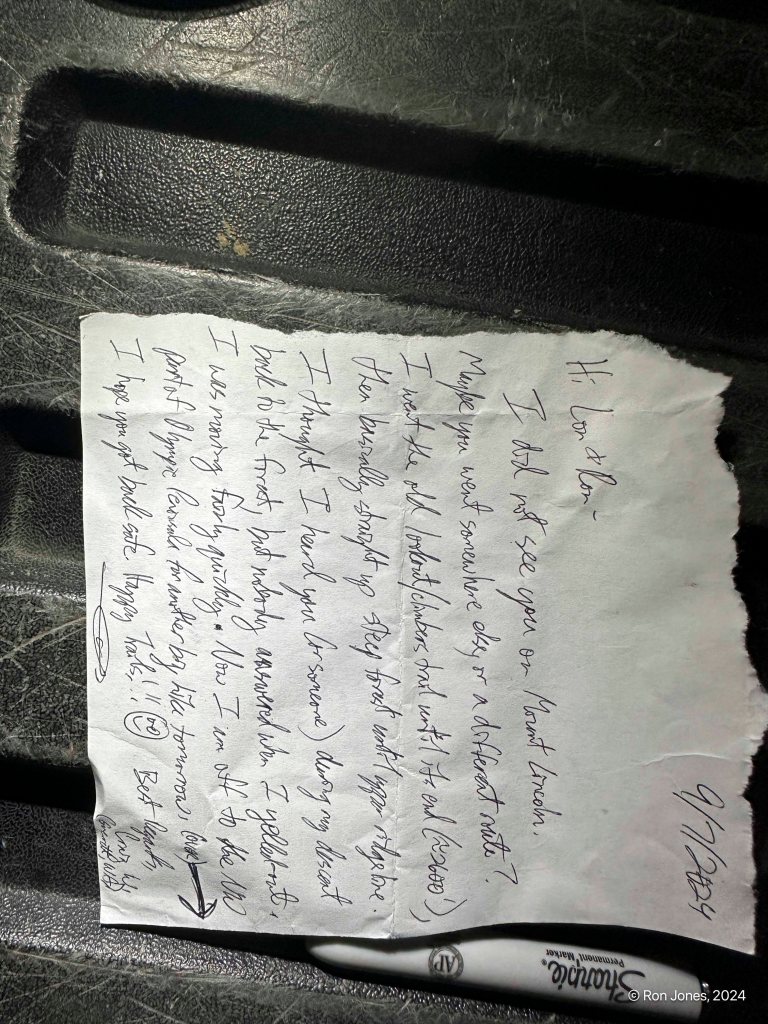 9/7/2024
Hi Lon & Ron -
I did not see you on Mount Lincoln.
Maybe you went somewhere else, or a different route?
I went the old lookout/climbers trail until its end (≈3600'),
then basically straight up steep forest until upper ridgeline.
I thought I heard you (or someone) during my descent
back to the forest, but nobody answered when I yelled out.
I was moving fairly quickly. Now I am off to the NW
part of Olympic Peninsula for another big hike tomorrow. (over)
I hope you got back safe. Happy Trails!!
Best Regards,
Sharpie®
Permanent Marker
AP
© Ron Jones, 2024